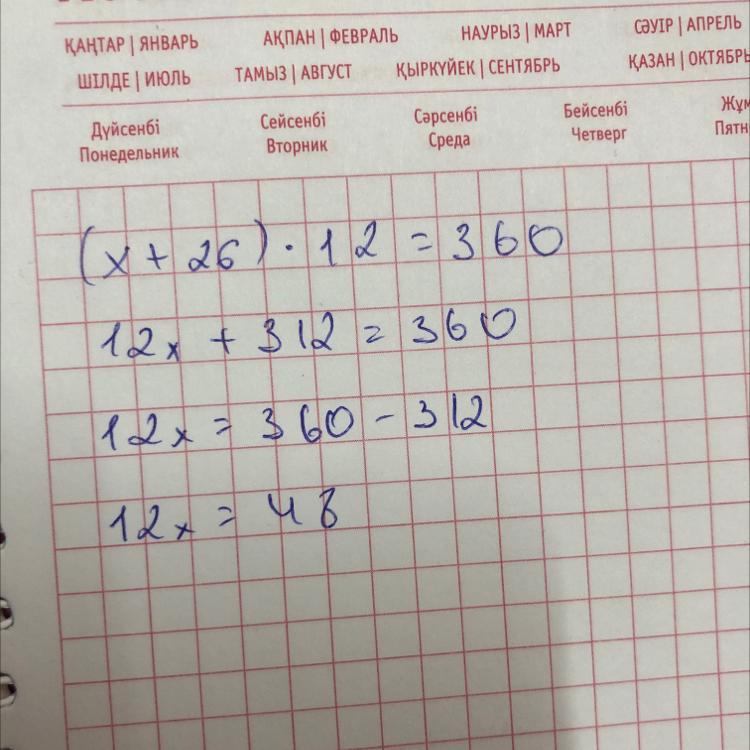 ҚАҢТАР | ЯНВАРЬ АҚПАН | ФЕВРАЛЬ НАУРЫЗ | МАРТ СӘУІР | АПРЕЛЬ
ШІЛДЕ | ИЮЛЬ ТАМЫЗ | АВГУСТ ҚЫРКҮЙЕК | СЕНТЯБРЬ ҚАЗАН | ОКТЯБРЬ
Дүйсенбі Сейсенбі Сәрсенбі Бейсенбі
Понедельник Вторник Среда Четверг
(x + 26) · 12 = 360
12x + 312 = 360
12x = 360 - 312
12x = 48